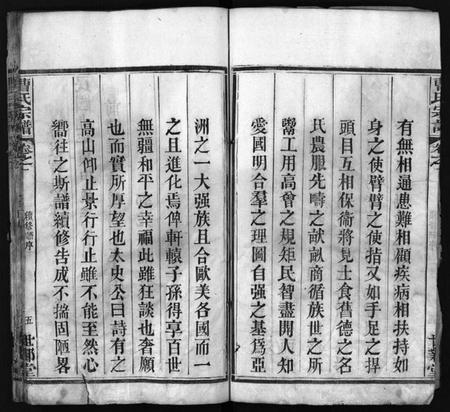 有無相通患難相顧疾病相扶持如
身之使臂臂之使指又如手足之捍
頭目互相保衛將見士食舊德之名
氏農服先疇之畎畝商循族世之所
鬻工用高曾之規矩民智盡開人知
愛國明合羣之理圖自强之基爲亞
洲之一大强族且合歐美各國而一
之且進化焉俾軒轅子孫得享百世
無疆和平之幸福此雖狂談也奢願
也而實所厚望也太史公曰詩有之
高山仰止景行行止雖不能至然心
嚮往之斯譜續修告成不揣固陋畧
曹氏宗譜
卷之
五